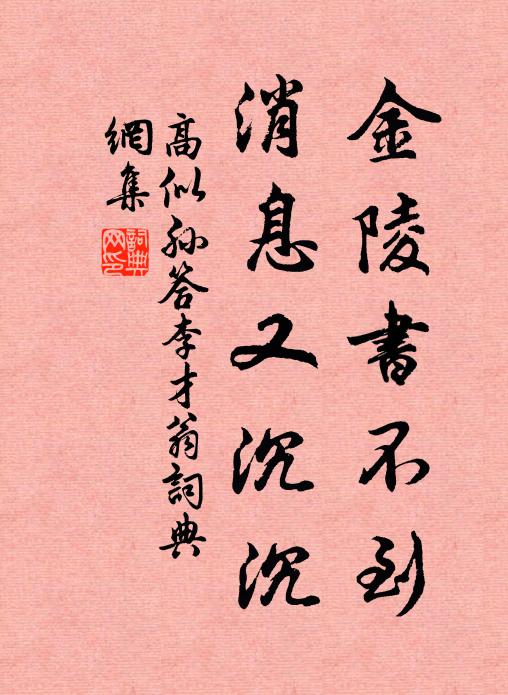 金陵書不到
消息又沉沉
高似孫答李才翁詞典
網集
詞典
网印